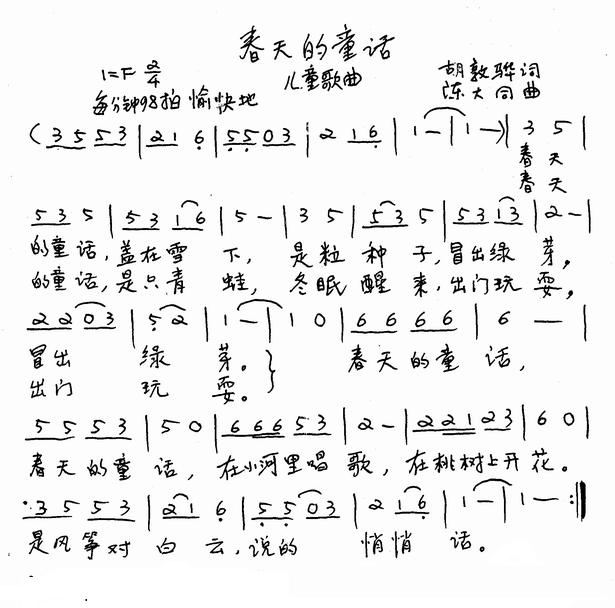 春天的童话
1=F 2/4 儿童歌曲 胡敦骅词
每分钟98拍 愉快地 陈大同曲
(3 5 5 3 | 2 1 6 | 5 5 0 3 | 2 1 6 | 1 — | 1 —) | 3 5 |
春天
春天
5 3 5 | 5 3 1 6 | 5 — | 3 5 | 5 3 5 | 5 3 1 3 | 2 — |
的童话,盖在雪下,是粒种子,冒出绿芽。
的童话,是只青蛙,冬眠醒来,出门玩耍。
2 2 0 3 | 5 2 | 1 — | 1 0 | 6 6 6 6 | 6 — |
冒出绿芽。} 春天的童话,
出门玩耍。
5 5 5 3 | 5 0 | 6 6 6 5 3 | 2 — | 2 2 1 2 3 | 6 0 |
春天的童话,在小河里唱歌,在桃树上开花。
3 5 5 3 | 2 1 6 | 5 5 0 3 | 2 1 6 | 1 — | 1 — :‖
是风筝对白云,说的悄悄话。